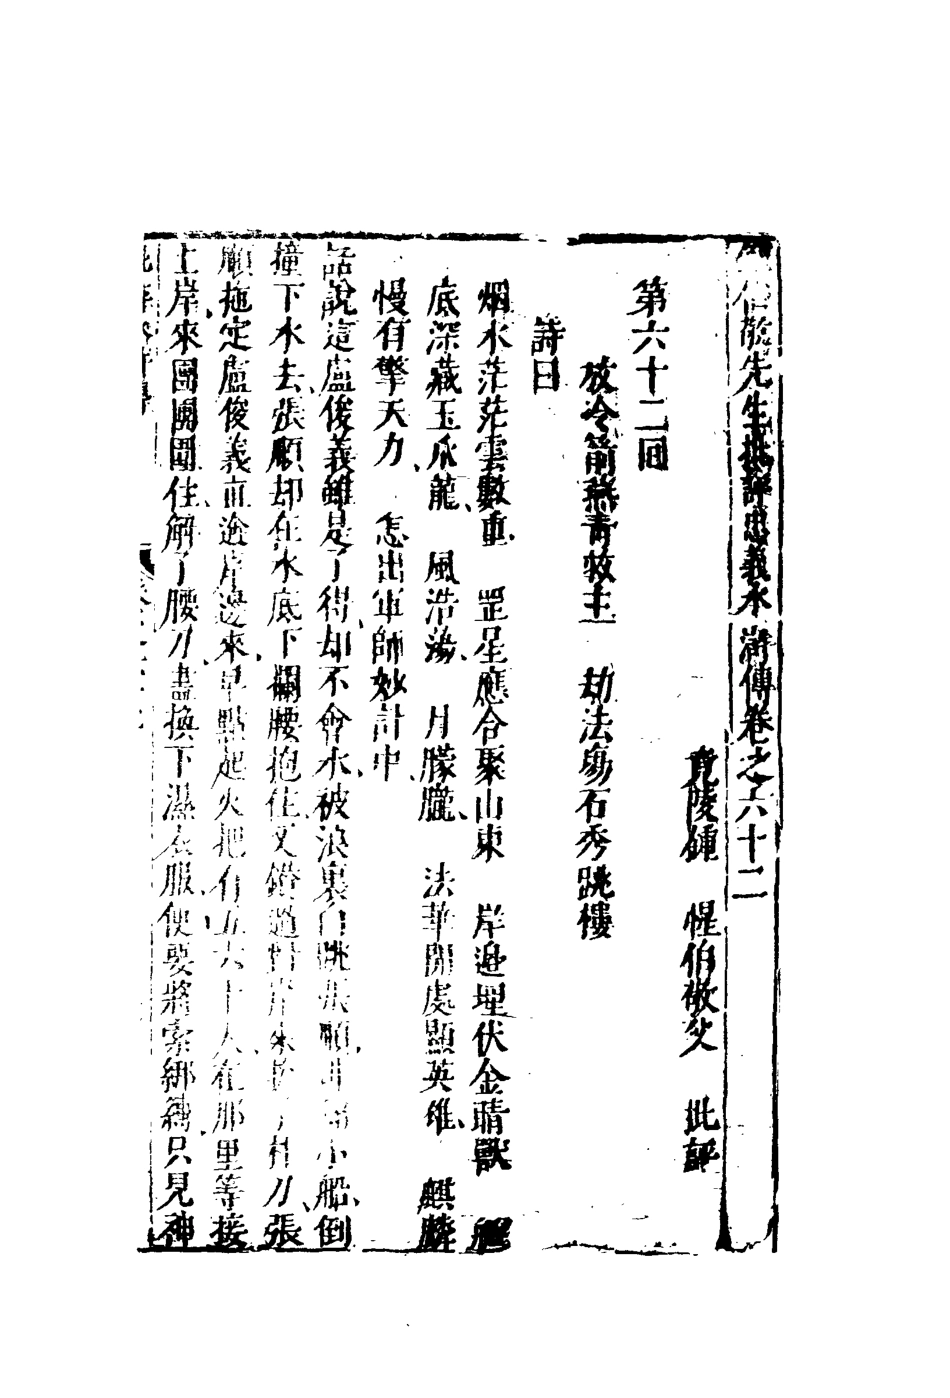 伯敬先生批評忠義水滸傳卷之六十二
竟陵鍾　惺伯敬父　批評
第六十二回
放冷箭燕青救主　劫法場石秀跳樓
詩曰
烟水茫茫雲數重　罡星應合聚山東　岸邊埋伏金睛獸　船
底深藏玉爪龍　風浩蕩　月朦朧　法華開處顯英雄　麒麟
慢有擎天力　怎出軍師妙計中
話說這盧俊義雖是了得却不會水被浪裏白跳張順排翻小船倒
撞下水去張順却在水底下攔腰抱住又鑽過對岸來搶了朴刀張
順拖定盧俊義直透岸邊來早點起火把有五六十人在那里等接
上岸來團團圍住解了腰刀盡換下濕衣服便要將索綁縛只見神